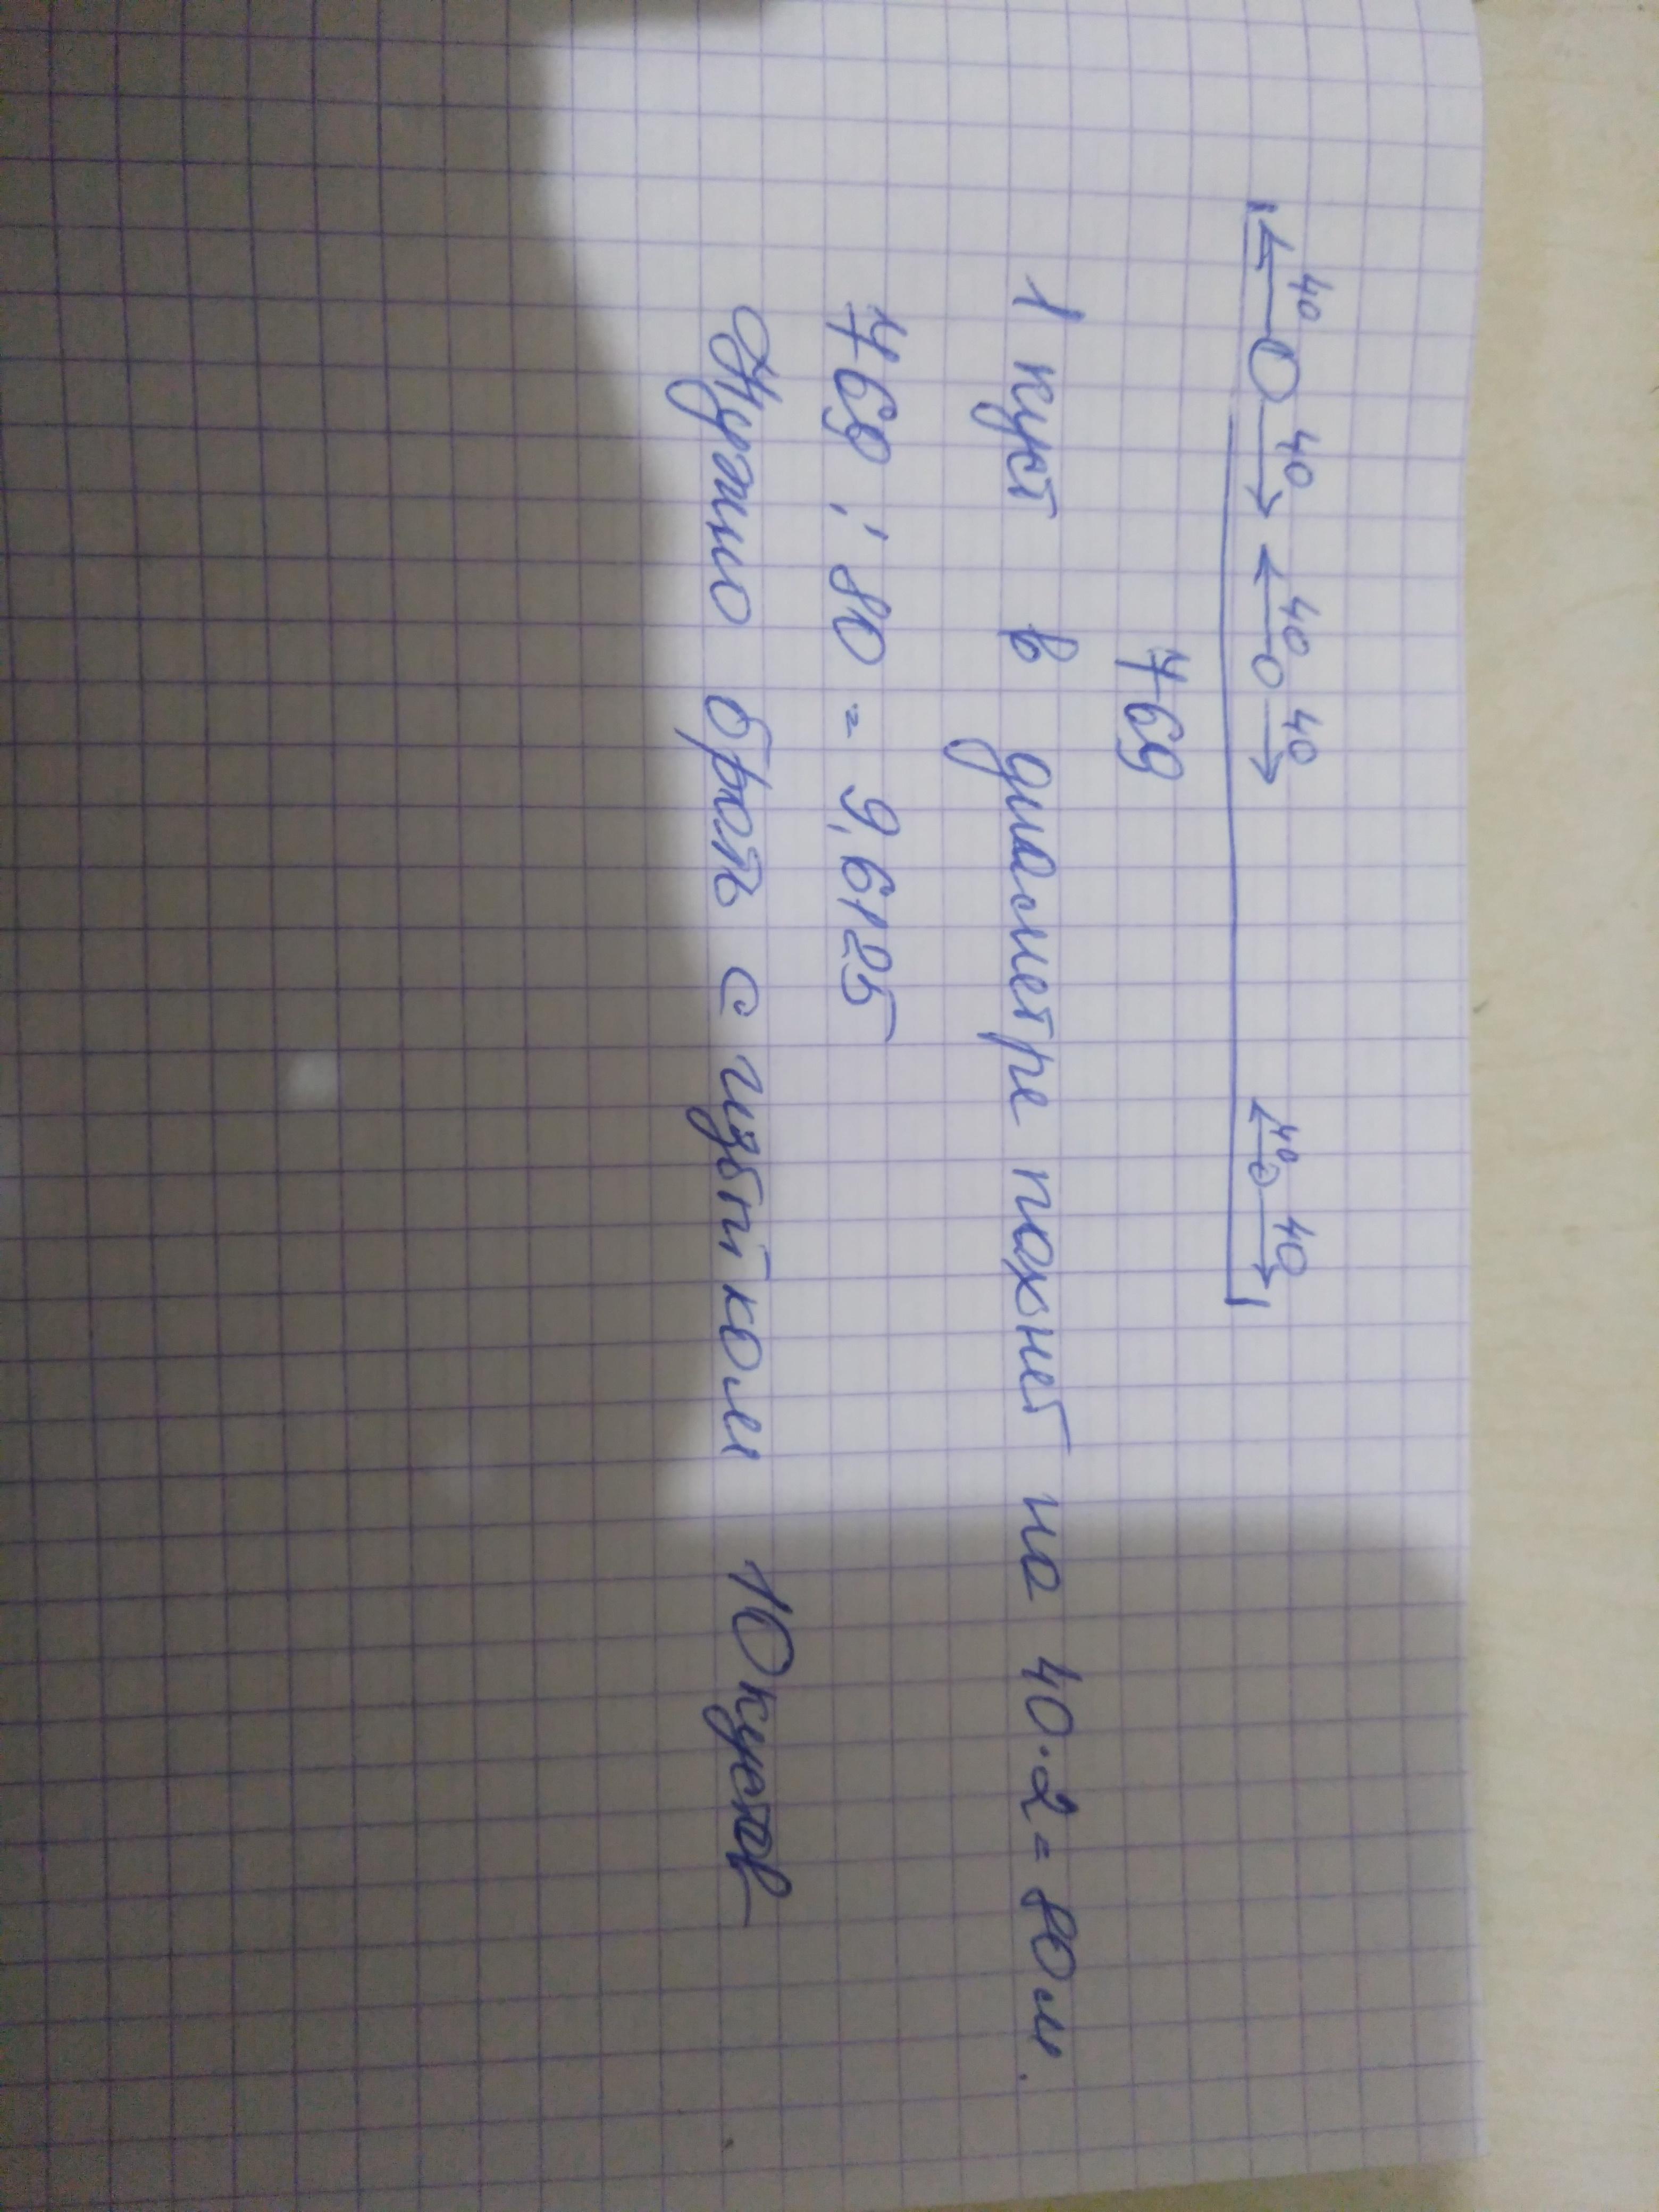 40 40 40 40 40 40
769
1 куст в диаметре пахнет на 40·2=80м.
769 : 80 = 9,6125
Нужно брать с избытком 10 кустов